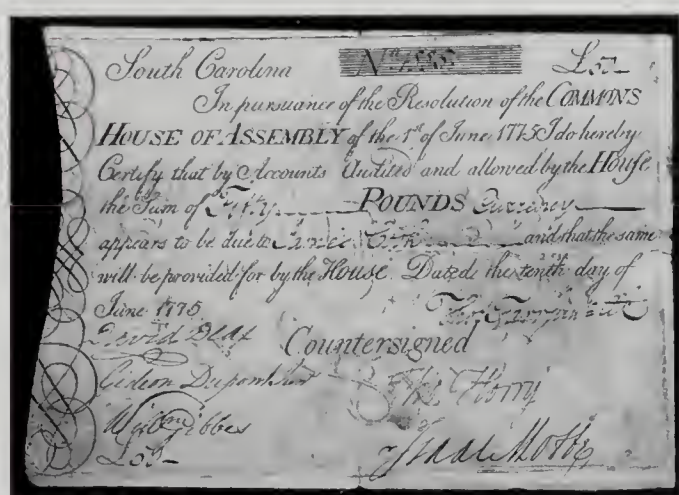 South Carolina No. £50-
In pursuance of the Resolution of the COMMONS
HOUSE OF ASSEMBLY of the 1st of June 1775 I do hereby
Certify that by Accounts Audited and allowed by the House
the Sum of Fifty POUNDS Currency
appears to be due to and that the same
will be provided for by the House. Dated the tenth day of
June 1775
David Deas Countersigned
Gideon Dupont Junr Tho Horry
Willm Gibbes
£50- Isaac Motte